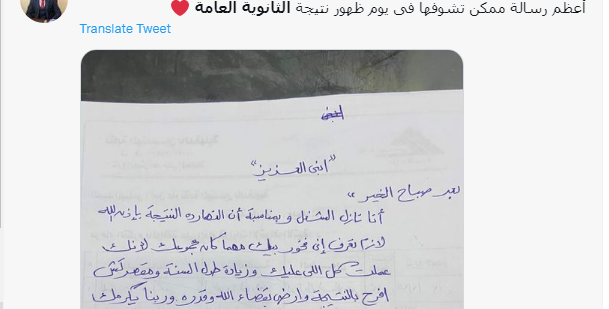 أعظم رسالة ممكن تشوفها فى يوم ظهور نتيجة الثانوية العامة ❤️
Translate Tweet
"ابنى العزيز"
بعد صباح الخير،،
أنا نازل الشغل وبمناسبة أن النهارده النتيجة بإذن الله
لازم تعرف إنى فخور بيك مهما كان مجموعك لأنك
عملت كل اللى عليك وزيادة طول السنة ومقصرتش
افرح بالنتيجة وارضى بقضاء الله وقدره وربنا يكرمك